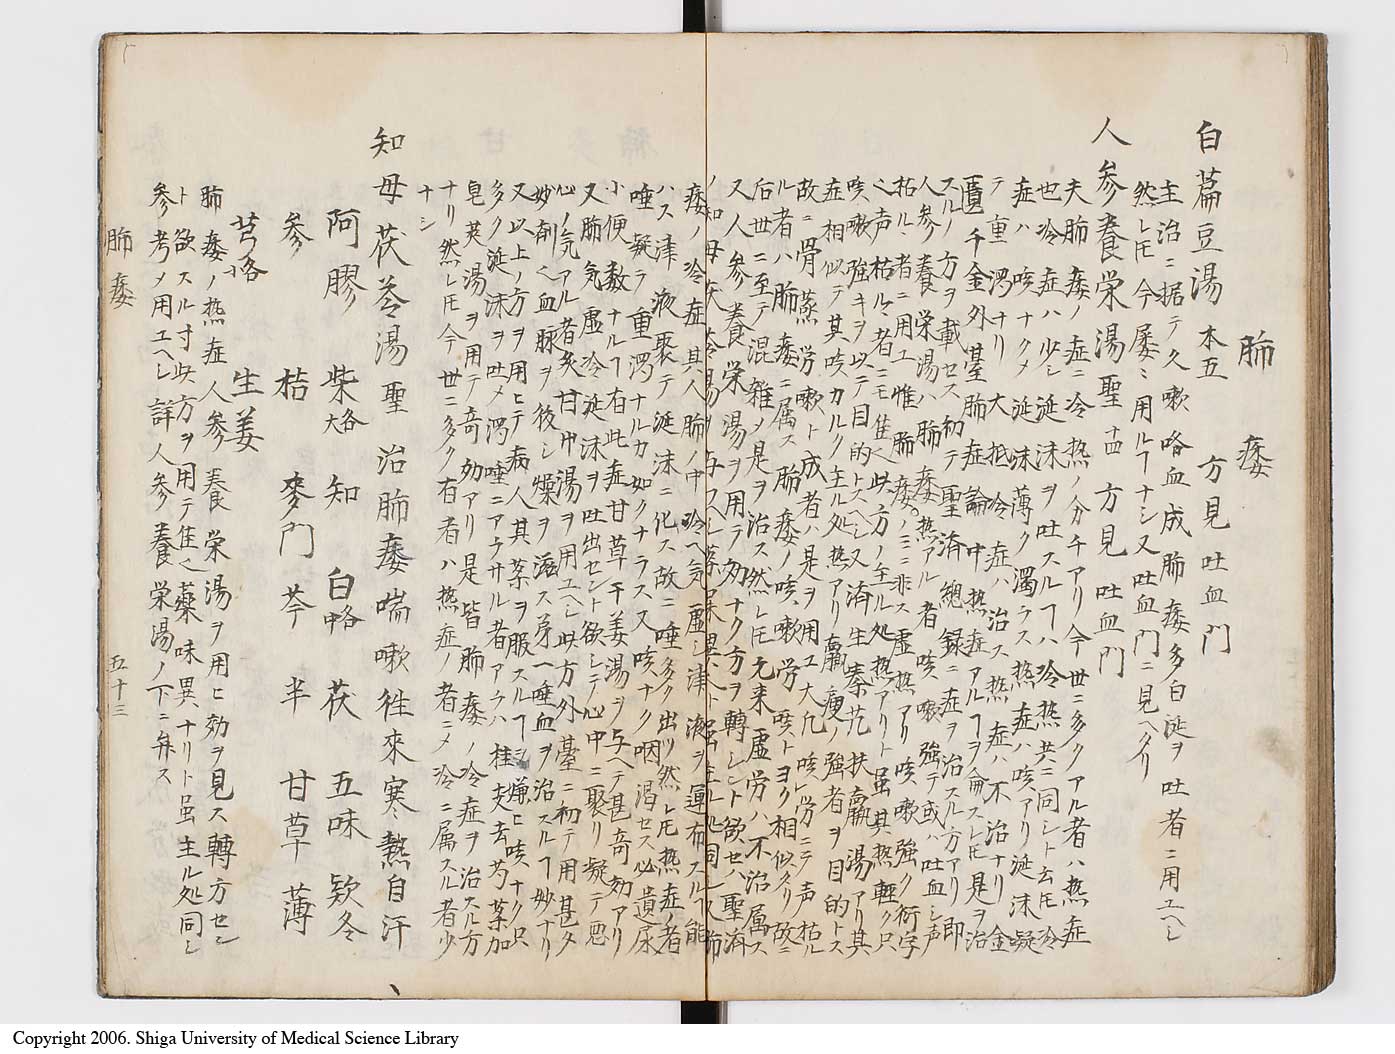 肺痿
白扁豆湯 本五 方見吐血門
主治ニ据テ久嗽咯血成肺痿多白涎ヲ吐者ニ用ユヘシ
然レ𪜈今屡々用ルヿナシ又吐血門ニ見ヘタリ
人参養栄湯 聖十四 方見吐血門
夫肺痿ノ症ニ冷熱ノ分チアリ今世ニ多クアル者ハ熱症
也冷症ハ少シ涎沫ヲ吐スルヿハ冷熱共ニ同シト云𪜈冷
症ハ咳ナクメ涎沫薄ク濁ラス熱症ハ咳アリ涎沫凝
テ重濁ナリ大抵冷症ハ治ス熱症ハ不治ナリ金
匱千金外臺肺症論中熱症アルヿヲ論スレ𪜈是ヲ治
スルノ方ヲ載セス初テ聖済總録ニ症ヲ治スル方アリ即
人参養栄湯ハ肺痿熱アル者咳嗽強テ或ハ吐血シ声
枯ル者ニ用ユ惟肺痿ノミニ非ス虚熱アリ咳嗽強ク
声枯ル者ニモ
咳嗽強キヲ以テ目的トスヘシ又済生秦艽扶羸湯アリ其
症相似テ其咳カルク主ル処熱アリ羸痩ノ強者ヲ目的トス
故ニ骨蒸労嗽ト成者ハ是ヲ用ユ大凡咳シ労ニテ声枯ル
ル者ハ肺痿ニ属ス肺痿ノ咳嗽労咳トヨク相似タリ故ニ
后世ニ至テ混雑メ是ヲ治ス然レ𪜈元来虚労ハ不治属ス
又人参養栄湯ヲ用テ効ナク方ヲ轉シント欲セハ聖済
ノ知母茯苓湯ヲ与フヘシ薬味異
痿ノ冷症其人肺ノ中冷ヘ気虚シ津液ヲ運布スルヿ能
ハス津液聚テ涎沫ニ化ス故ニ唾多ク出ツ然レ𪜈熱症ノ者
唾凝テ重濁ナルカ如クナラス又咳ナク咽渇セス必遺尿
小便数ナルヿ有此症甘草干姜湯ヲ与ヘテ甚奇効アリ
又肺気虚冷涎沫ヲ吐出セント欲シテ心中ニ聚リ凝テ思
心ノ気アル者炙甘艸湯ヲ用ユヘシ此方外臺ニ初テ用甚タ
妙剤也血脉ヲ復シ燥ヲ滋ス第一唾血ヲ治スルヿ妙ナリ
又以上ノ方ヲ用ヒテ病人其薬ヲ服スルヿヲ嫌ヒ咳ナク只
多ク涎沫ヲ吐メ濁唾ニアラサル者アラハ桂支去芍薬加
皂莢湯ヲ用テ奇効アリ是皆肺痿ノ冷症ヲ治スル方
ナリ然レ𪜈今世ニ多ク有者ハ熱症ノ者ニメ冷ニ属スル者少
ナシ
知母茯苓湯 聖 治肺痿喘嗽徃來寒熱自汗
阿膠 柴大各 知 白中各 茯 五味 欵冬
参 桔 麥門 芩半 甘草 薄
芎小各 生姜
肺痿ノ熱症人参養栄湯ヲ用ヒ効ヲ見ス轉方セシ
ト欲スル寸此方ヲ用テ佳也藥味異ナリト虽主ル処同シ
参考メ用ユヘシ詳人参養栄湯ノ下ニ弁ス
肺痿 五十三
Copyright 2006. Shiga University of Medical Science Library